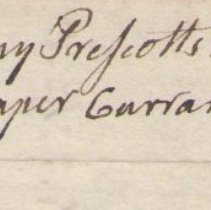 ny Preſcotts
aper Curran